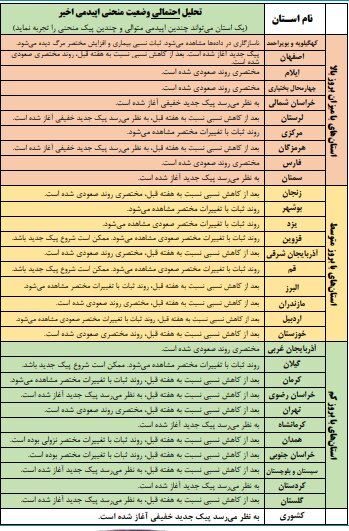 نام استان
تحلیل احتمالی وضعیت منحنی اپیدمی اخیر
(یک استان می‌تواند چندین اپیدمی متوالی و چندین پیک منحنی را تجربه نماید)
استان‌های با میزان بروز بالا
کهگیلویه و بویراحمد
ناسازگاری در داده‌ها مشاهده می‌شود. ثبات نسبی بیماری و افزایش مختصر مرگ دیده می‌شود.
اصفهان
پیک جدید آغاز شده است. بعد از کاهش نسبی نسبت به هفته قبل، روند مختصری صعودی شده است.
ایلام
مختصری روند صعودی شده است.
چهارمحال بختیاری
مختصری روند صعودی شده است.
خراسان شمالی
بعد از کاهش نسبی نسبت به هفته قبل، پیک جدید خفیفی آغاز شده است.
لرستان
بعد از کاهش نسبی نسبت به هفته قبل، به نظر می‌رسد پیک جدید خفیفی آغاز شده است.
مرکزی
روند ثبات با تغییرات مختصر مشاهده می‌شود.
هرمزگان
بعد از کاهش نسبی نسبت به هفته قبل، به نظر می‌رسد پیک جدید خفیفی آغاز شده است.
فارس
مختصری روند صعودی شده است.
سمنان
به نظر می‌رسد پیک جدید آغاز شده است.
استان‌های با بروز متوسط
زنجان
بعد از کاهش نسبی نسبت به هفته قبل، مختصری روند صعودی شده است.
بوشهر
روند ثبات با تغییرات مختصر مشاهده می‌شود.
یزد
روند ثبات با تغییرات مختصر مشاهده می‌شود.
قزوین
روند ثبات با تغییرات مختصر مشاهده می‌شود. ممکن است شروع پیک جدید باشد.
آذربایجان شرقی
بعد از کاهش نسبی نسبت به هفته قبل، مختصری روند صعودی شده است.
قم
روند ثبات با تغییرات مختصر مشاهده می‌شود. ممکن است شروع پیک جدید باشد.
البرز
بعد از کاهش نسبی نسبت به هفته قبل، روند ثبات با تغییرات مختصر مشاهده می‌شود.
مازندران
بعد از کاهش نسبی نسبت به هفته قبل، مختصری روند صعودی شده است.
اردبیل
بعد از کاهش نسبی نسبت به هفته قبل، روند ثبات با تغییرات مختصر مشاهده می‌شود.
خوزستان
بعد از کاهش نسبی نسبت به هفته قبل، مختصری روند صعودی شده است.
استان‌های با بروز کم
آذربایجان غربی
مختصری روند صعودی شده است.
گیلان
روند ثبات با تغییرات مختصر مشاهده می‌شود. ممکن است شروع پیک جدید باشد.
کرمان
بعد از کاهش نسبی نسبت به هفته قبل، روند ثبات با تغییرات مختصر مشاهده می‌شود.
خراسان رضوی
بعد از کاهش نسبی نسبت به هفته قبل، به نظر می‌رسد پیک جدید آغاز شده است.
تهران
بعد از کاهش نسبی نسبت به هفته قبل، مختصری روند صعودی شده است.
کرمانشاه
به نظر می‌رسد پیک جدید آغاز شده است.
همدان
بعد از کاهش نسبی نسبت به هفته قبل، روند ثبات با تغییرات مختصر نزولی بوده است.
خراسان جنوبی
بعد از کاهش نسبی نسبت به هفته قبل، روند ثبات با تغییرات مختصر بوده است.
سیستان و بلوچستان
بعد از کاهش نسبی نسبت به هفته قبل، به نظر می‌رسد پیک جدید آغاز شده است.
کردستان
به نظر می‌رسد پیک جدید آغاز شده است.
گلستان
بعد از کاهش نسبی نسبت به هفته قبل، به نظر می‌رسد پیک جدید آغاز شده است.
کشوری
به نظر می‌رسد پیک جدید خفیفی آغاز شده است.